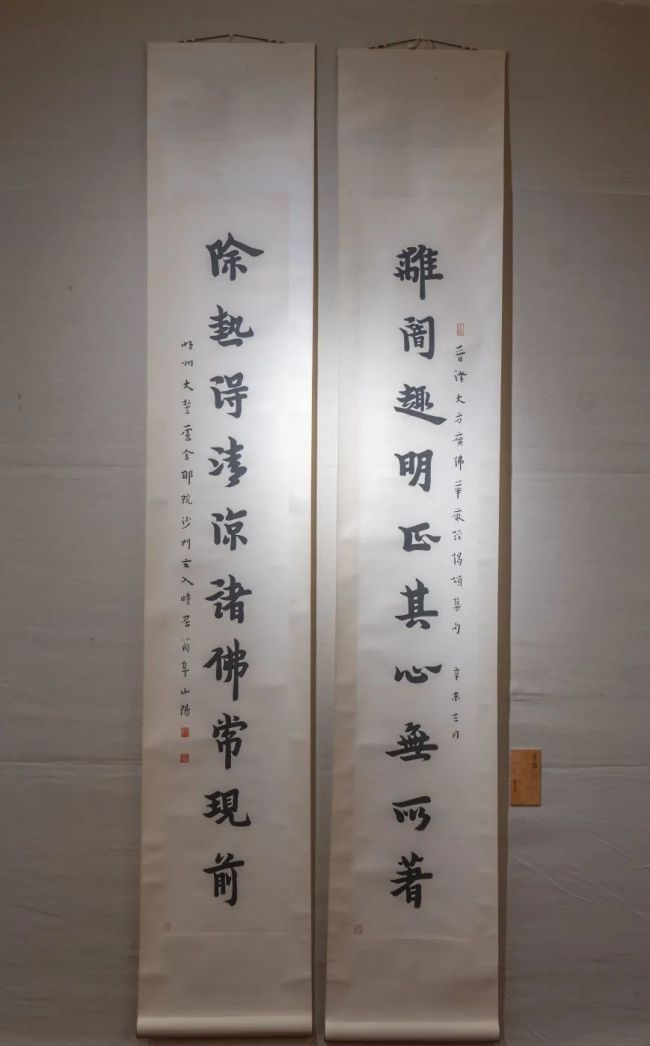 晉譯大方廣佛華嚴經偈頌集句 辛未三月
離闇趣明正其心無所著
除熱得清涼諸佛常現前
明州大誓盧舍那院沙門玄入時居箭阜山陽